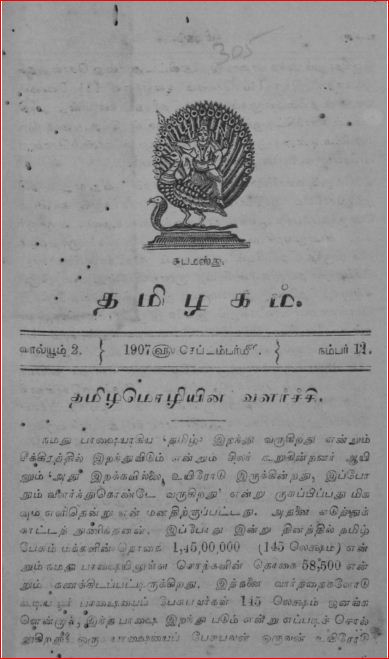 305
சுபமஸ்து.
தமிழகம்.
வால்யூம் 2. } 1907௵ செப்டம்பர்௴. { நம்பர் 12.
தமிழ்மொழியின் வளர்ச்சி.
நமது பாஷையாகிய 'தமிழ்' இறந்து வருகிறது என்றும்
சீக்கிரத்தில் இறந்துவிடும் என்றும் சிலர் கூறுகின்றனர் ஆயி
னும் 'அது இறக்கவில்லை, உயிரோடு இருக்கின்றது, இப்போ
தும் வளர்ந்துகொண்டே வருகிறது' என்று ருசுப்பிப்பது மிக
வும் எளிதென்று என் மனதிற்குப்பட்டது. அதனை எடுத்துக்
காட்டத் துணிந்தனன். இப்போது இன்று தினத்தில் தமிழ்
பேசும் மக்களின் தொகை 1,45,00,000 (145 லெக்ஷம்) என்
றும் நமது பாஷையிலுள்ள சொற்களின் தொகை 58,500 என்
றும் கணக்கிடப்பட்டிருக்கிறது. இத்தனை வார்த்தைகளோடு
கூடிய ஓர் பாஷையைப் பேசுபவர்கள் 145 லெக்ஷம் ஜனங்க
ளென்றால், இந்த பாஷை இறந்து படும் என்று எப்படிச் சொல்
லுகிறது? ஒரு பாஷையைப் பேசுபவன் ஒருவன் உயிரோடு